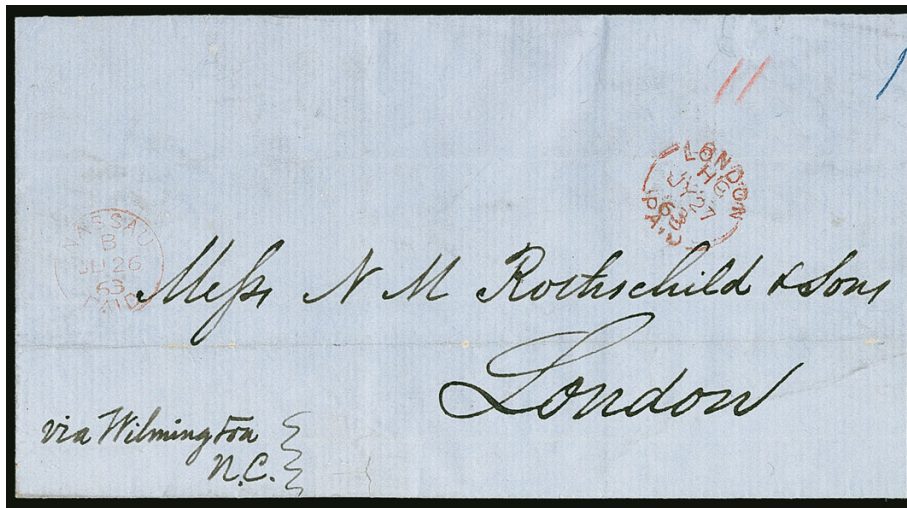 11
LONDON
HC
JY 27
63
PAID
NASSAU
B
JU 26
63
PAID
Messrs N M Rothschild & Sons
London
via Wilmington
N.C.